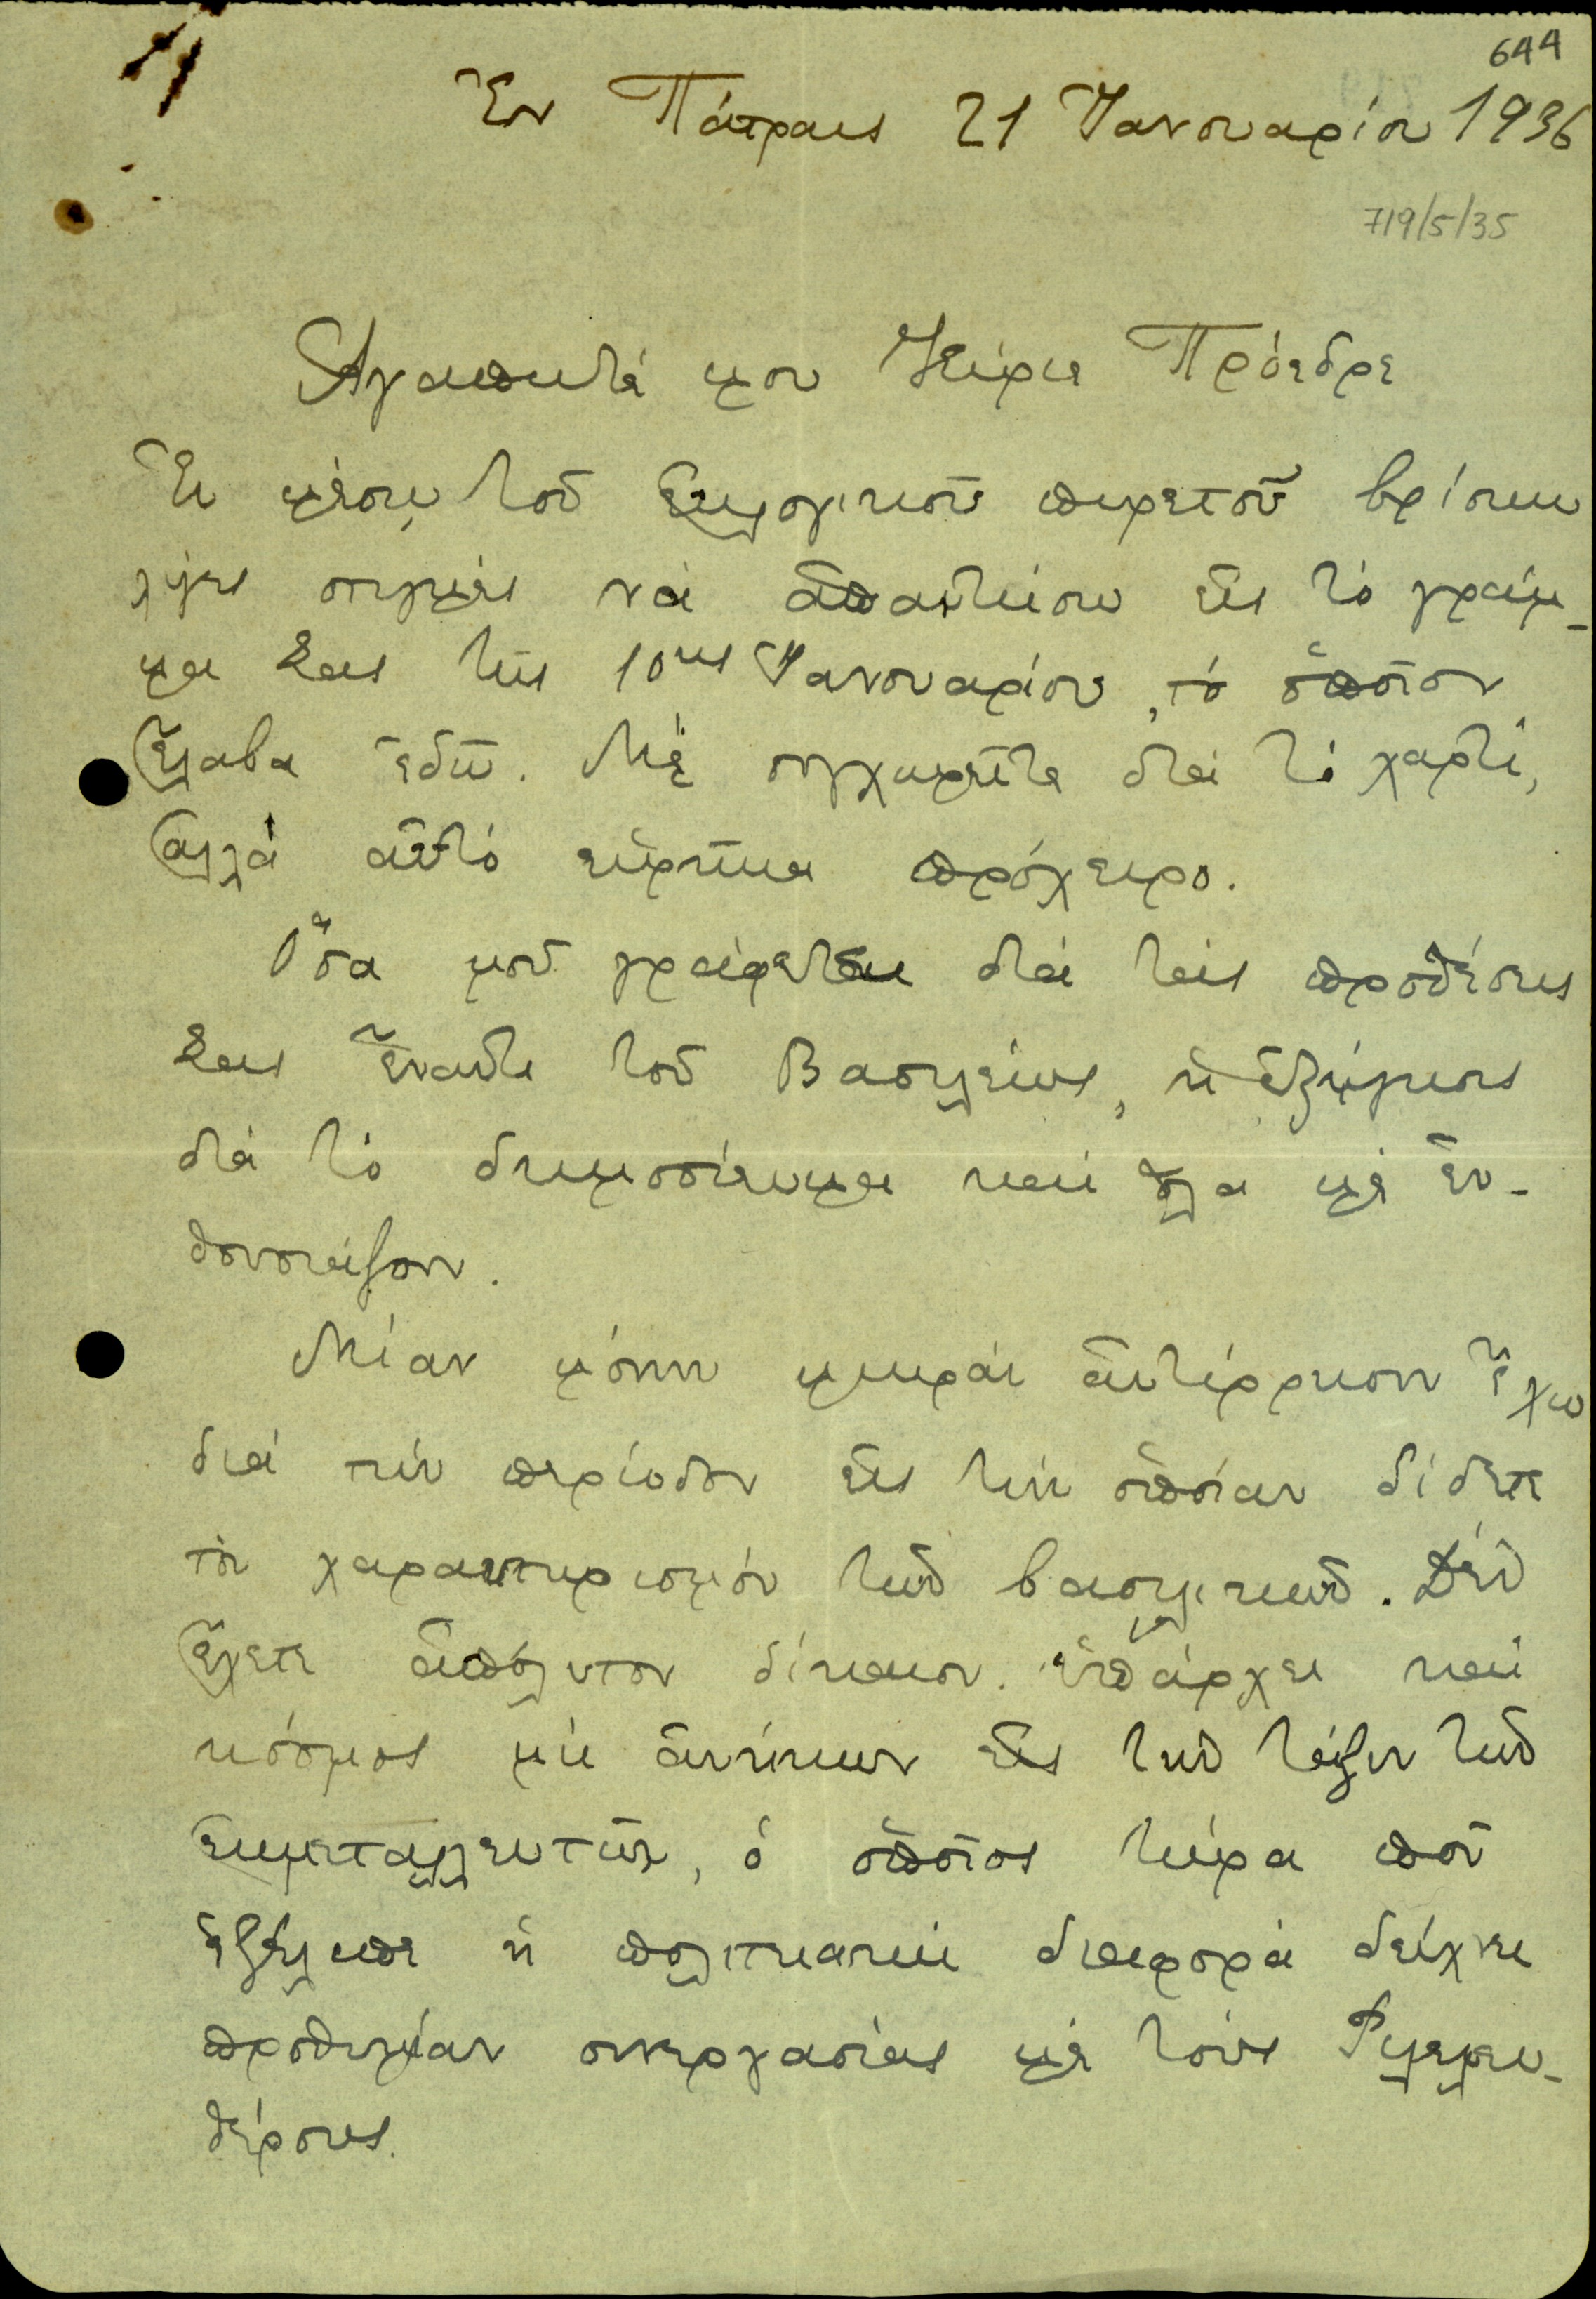 644
Ἐν Πάτραις 21 Ἰανουαρίου 1936
719/5/35
Ἀγαπητέ μου Κύριε Πρόεδρε
Ἐν μέσῳ τοῦ ἐκλογικοῦ πυρετοῦ βρίσκω
λίγες στιγμές νά ἀπαντήσω εἰς τό γράμ-
μα Σας τῆς 10ης Ἰανουαρίου, τό ὁποῖον
ἔλαβα ἐδῶ. Μέ συγχωρεῖτε διά τό χαρτί,
ἀλλά αὐτό εὑρῆκα πρόχειρο.
Ὅσα μοῦ γράφεται διά τάς προθέσεις
Σας ἔναντι τοῦ Βασιλέως, ἡ ἐξήγησις
διά τό δημοσίευμα καί ὅλα μέ ἐν-
θουσιάζουν.
Μίαν μόνην μικράν ἀντίρρησιν ἔχω
διά τήν περίοδον εἰς τήν ὁποίαν δίδετε
τόν χαρακτηρισμόν τῶν βασιλικῶν. Δέν
ἔχετε ἀπόλυτον δίκαιον. Ὑπάρχει καί
κόσμος μή ἀνήκων εἰς τήν τάξιν τῶν
ἐκμεταλλευτῶν, ὁ ὁποῖος τώρα πού
ἐξέλιπε ἡ πολιτειακή διαφορά δείχνει
προθυμίαν συνεργασίας μέ τούς Φιλελευ-
θέρους.